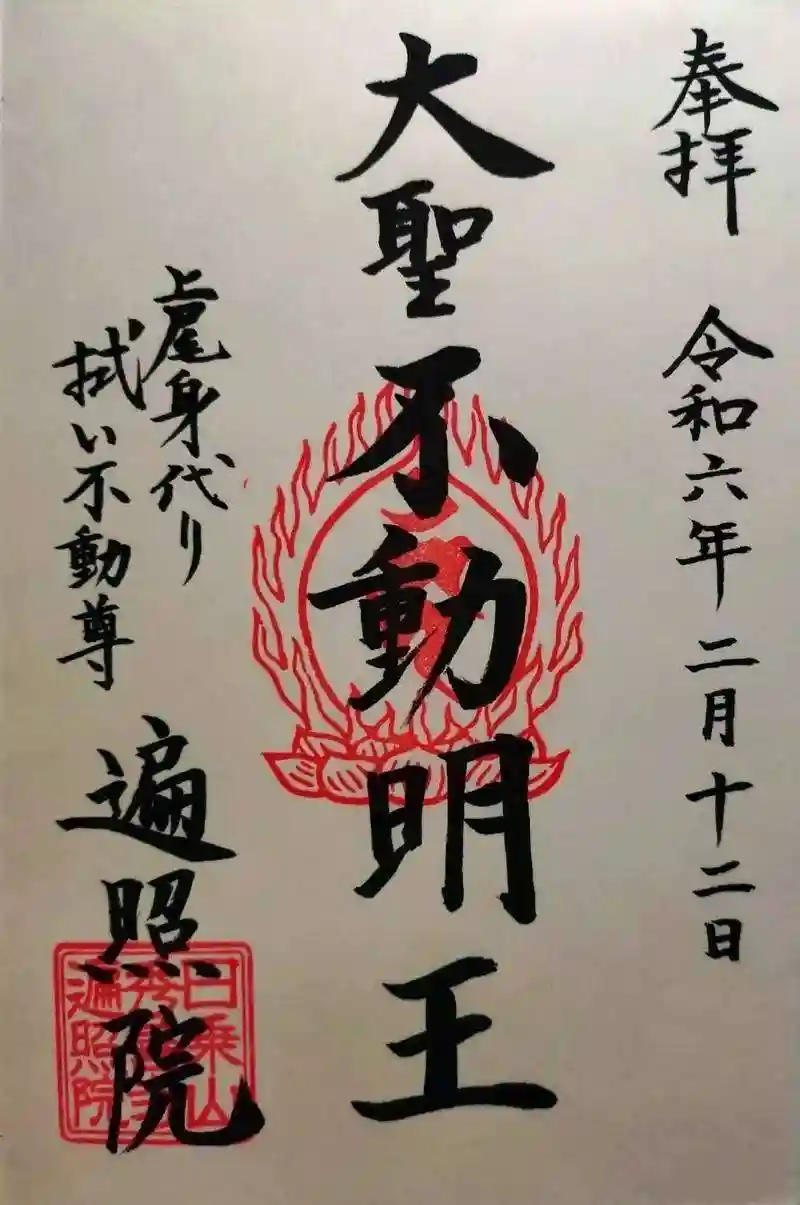 奉拝 令和六年二月十二日
大聖不動明王
上尾身代り
拭い不動尊
遍照院
日乗山
遍照院